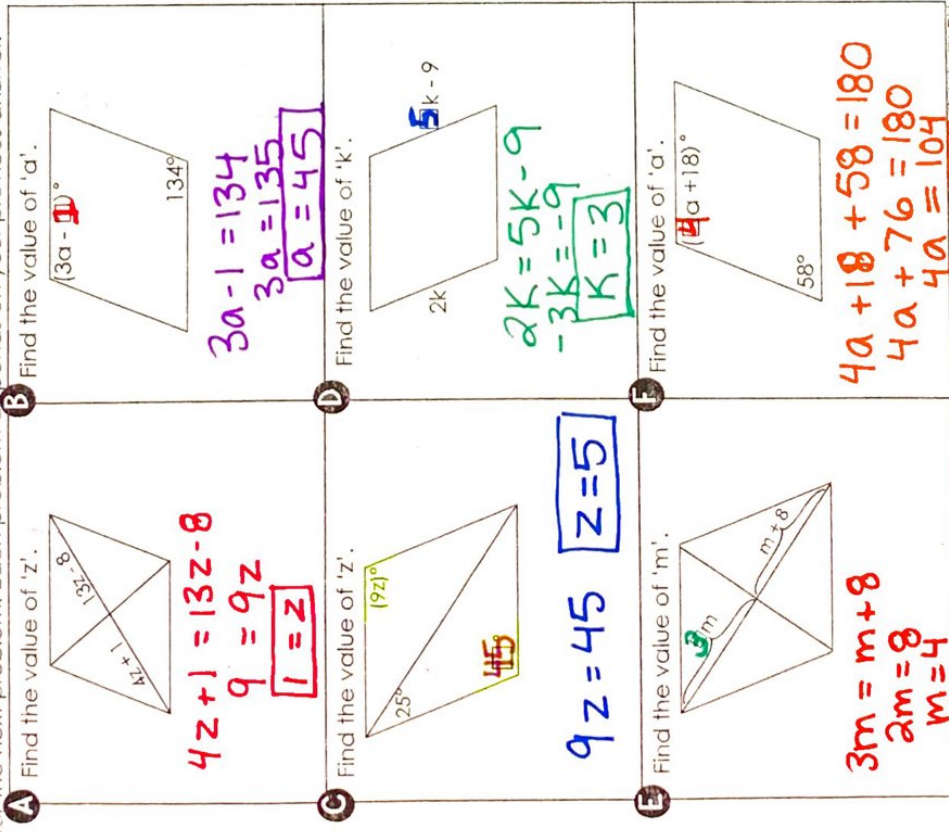 A Find the value of 'z'.
13z - 8
4z + 1
4z + 1 = 13z - 8
9 = 9z
1 = z
B Find the value of 'a'.
(3a - 1)°
134°
3a - 1 = 134
3a = 135
a = 45
C Find the value of 'z'.
25°
(9z)°
45°
9z = 45
z = 5
D Find the value of 'k'.
2k
5k - 9
2k = 5k - 9
-3k = -9
k = 3
E Find the value of 'm'.
3m
m + 8
3m = m + 8
2m = 8
m = 4
F Find the value of 'a'.
(4a + 18)°
58°
4a + 18 + 58 = 180
4a + 76 = 180
4a = 104